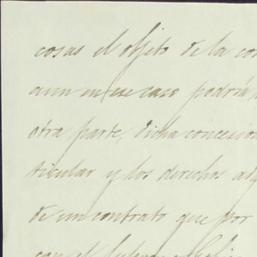 cosas el objeto de la con
aun en ese caso podría
otra parte, dicha concesion
ticular y los derechos ad
de un contrato que por
con el